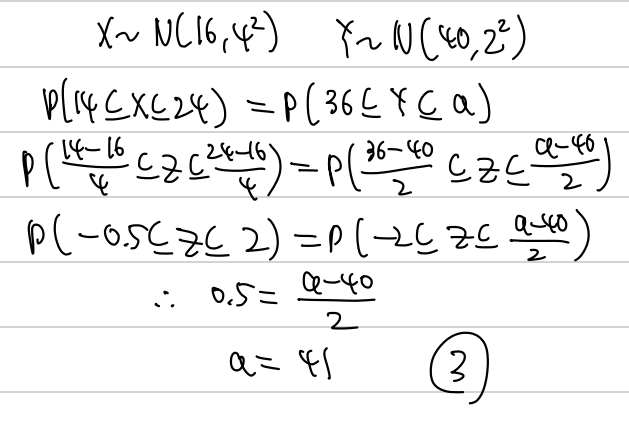 X~N(16,4²) Y~N(40,2²)
P(14≤X≤24) = P(36≤Y≤a)
P((14-16)/4 ≤Z≤ (24-16)/4) = P((36-40)/2 ≤Z≤ (a-40)/2)
P(-0.5≤Z≤2) = P(-2≤Z≤ (a-40)/2)
∴ 0.5 = (a-40)/2
a = 41 ③